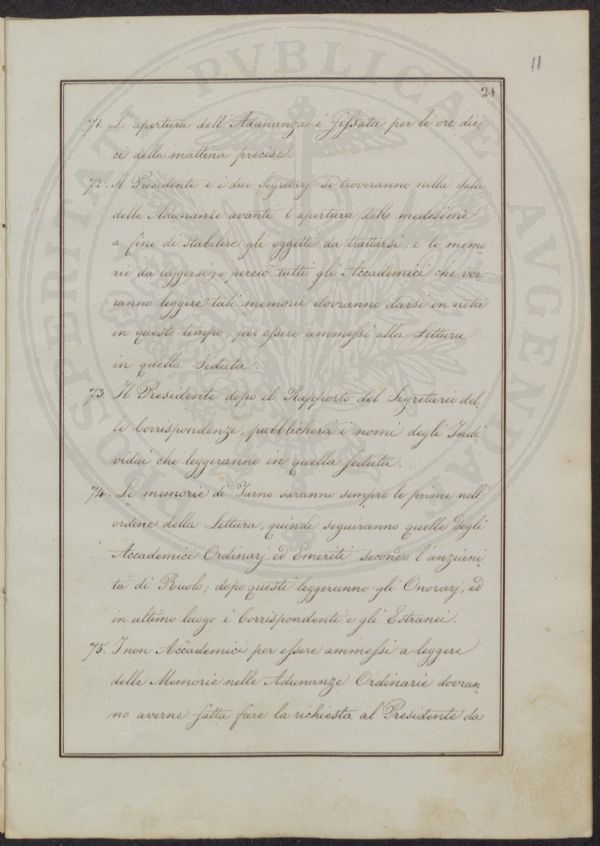 11
21
71. L'apertura dell'Adunanza è fissata per le ore die,
ci della mattina precise.
72. Il Presidente e i due Segretarj si troveranno nella Sala
delle Adunanze avanti l'apertura delle medesime
a fine di stabilire gli oggetti da trattarsi, e le memo
rie da leggersi; e perciò tutti gli Accademici che vor
ranno leggere tali memorie dovranno darsi in nota
in questo tempo, per essere ammessi alla Lettura
in quella Seduta.
73. Il Presidente dopo il Rapporto del Segretario del,
le Corrispondenze, pubblicherà i nomi degli Indi
vidui che leggeranno in quella seduta.
74. Le memorie di Turno saranno sempre le prime nell'
ordine della Lettura, quindi seguiranno quelle degli
Accademici Ordinarj ed Emeriti secondo l'anziani=
tà di Ruolo; dopo questi leggeranno gli Onorarj, ed
in ultimo luogo i Corrispondenti e gli Estranei.
75. I non Accademici per essere ammessi a leggere
delle Memorie nelle Adunanze Ordinarie dovran=
no averne fatta fare la richiesta al Presidente da
PROSPERITATI PVBLICAE AVGENDAE